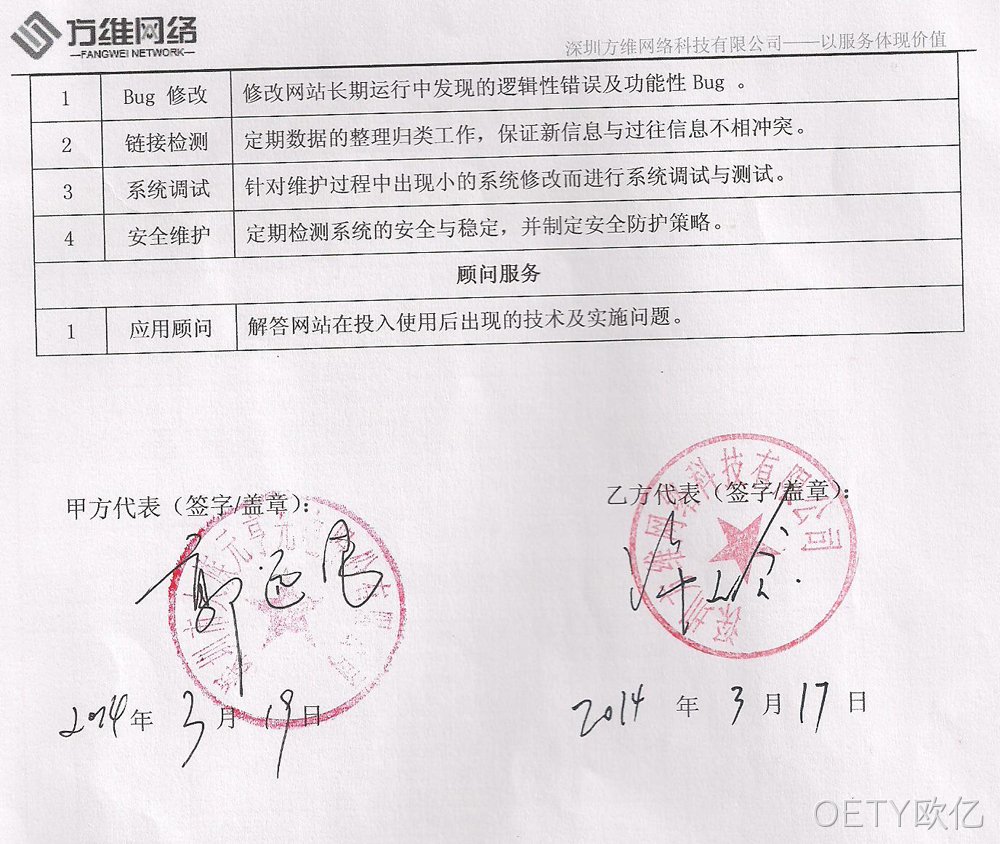 方维网络
FANGWEI NETWORK
深圳方维网络科技有限公司——以服务体现价值
1 Bug 修改 修改网站长期运行中发现的逻辑性错误及功能性Bug 。
2 链接检测 定期数据的整理归类工作，保证新信息与过往信息不相冲突。
3 系统调试 针对维护过程中出现小的系统修改而进行系统调试与测试。
4 安全维护 定期检测系统的安全与稳定，并制定安全防护策略。
顾问服务
1 应用顾问 解答网站在投入使用后出现的技术及实施问题。
甲方代表（签字/盖章）：
乙方代表（签字/盖章）：
深圳方维网络科技有限公司
2014年 3月 19日
2014 年 3 月 17 日
OETY欧亿